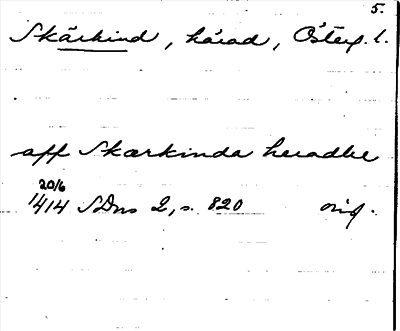 5.
Skärkind, härad, Österg. l.
aff Skærkinda heradhe
20/6
1414 SDns 2, s. 820 orig.